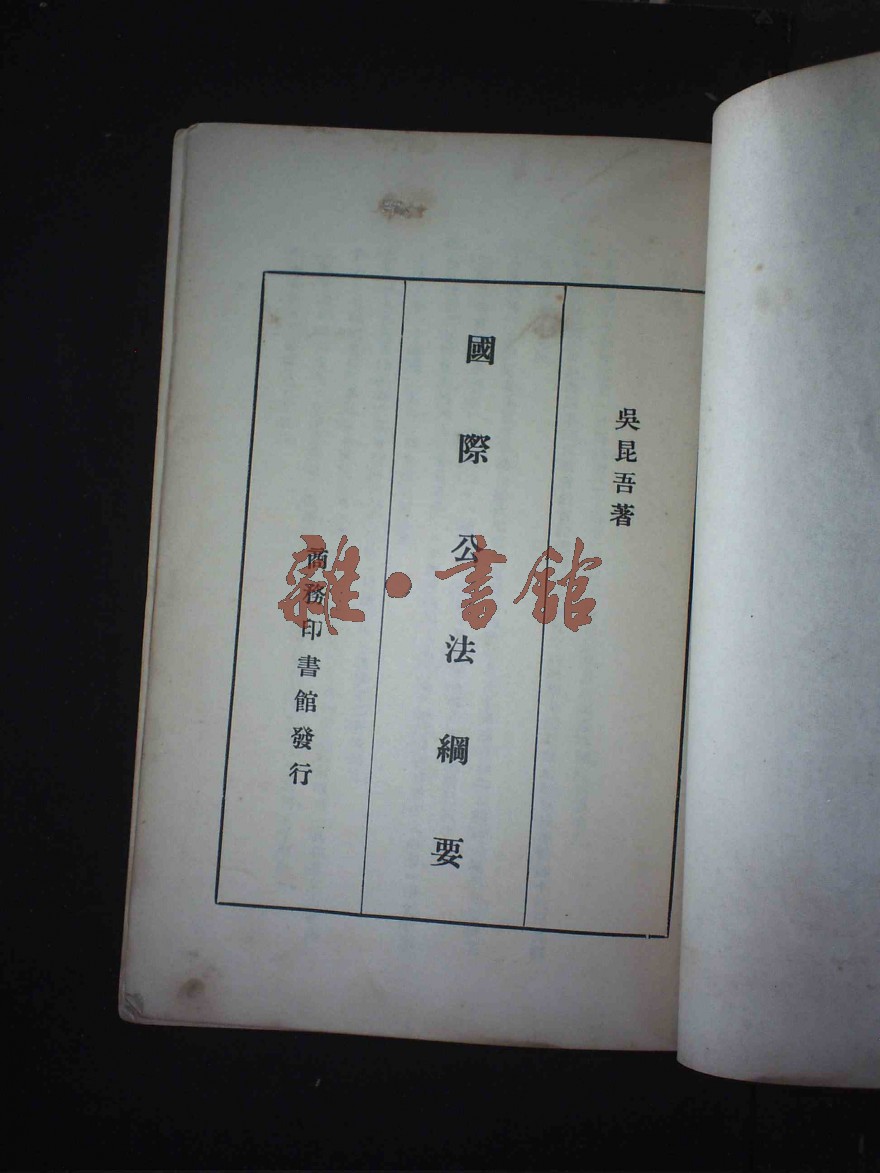 吳昆吾著
國際公法綱要
商務印書館發行
雜·書館